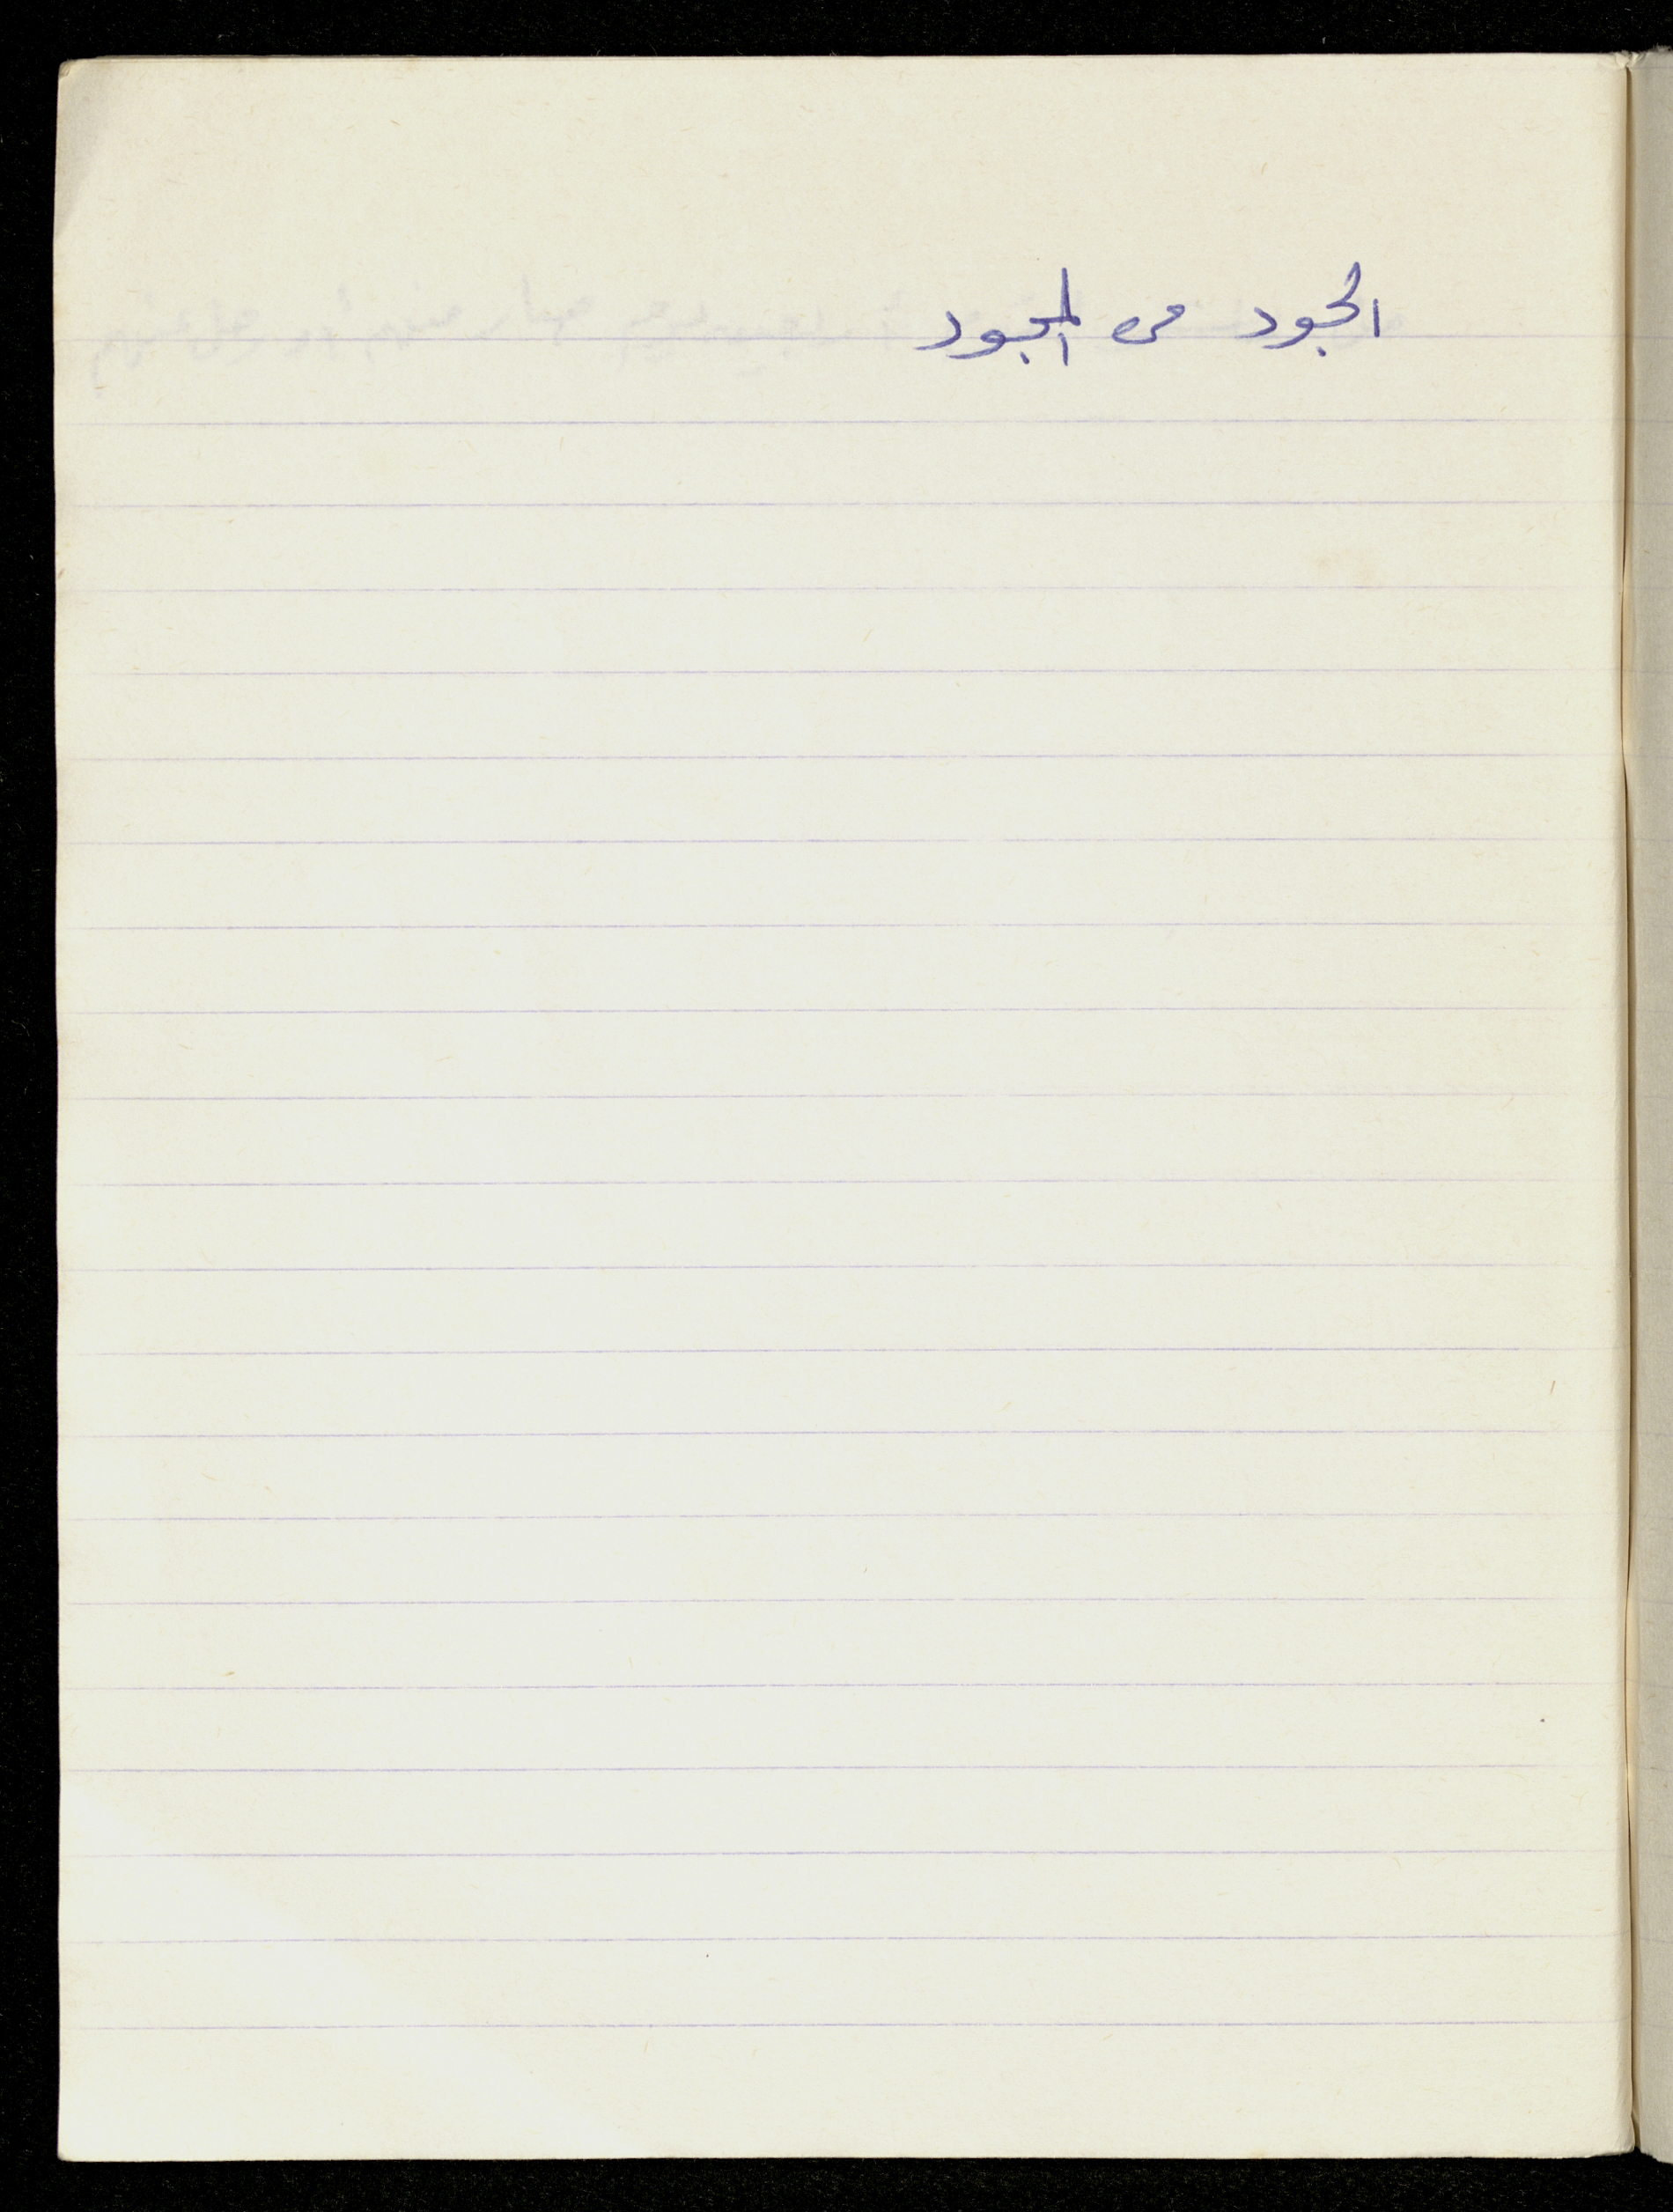 الجود من المجود